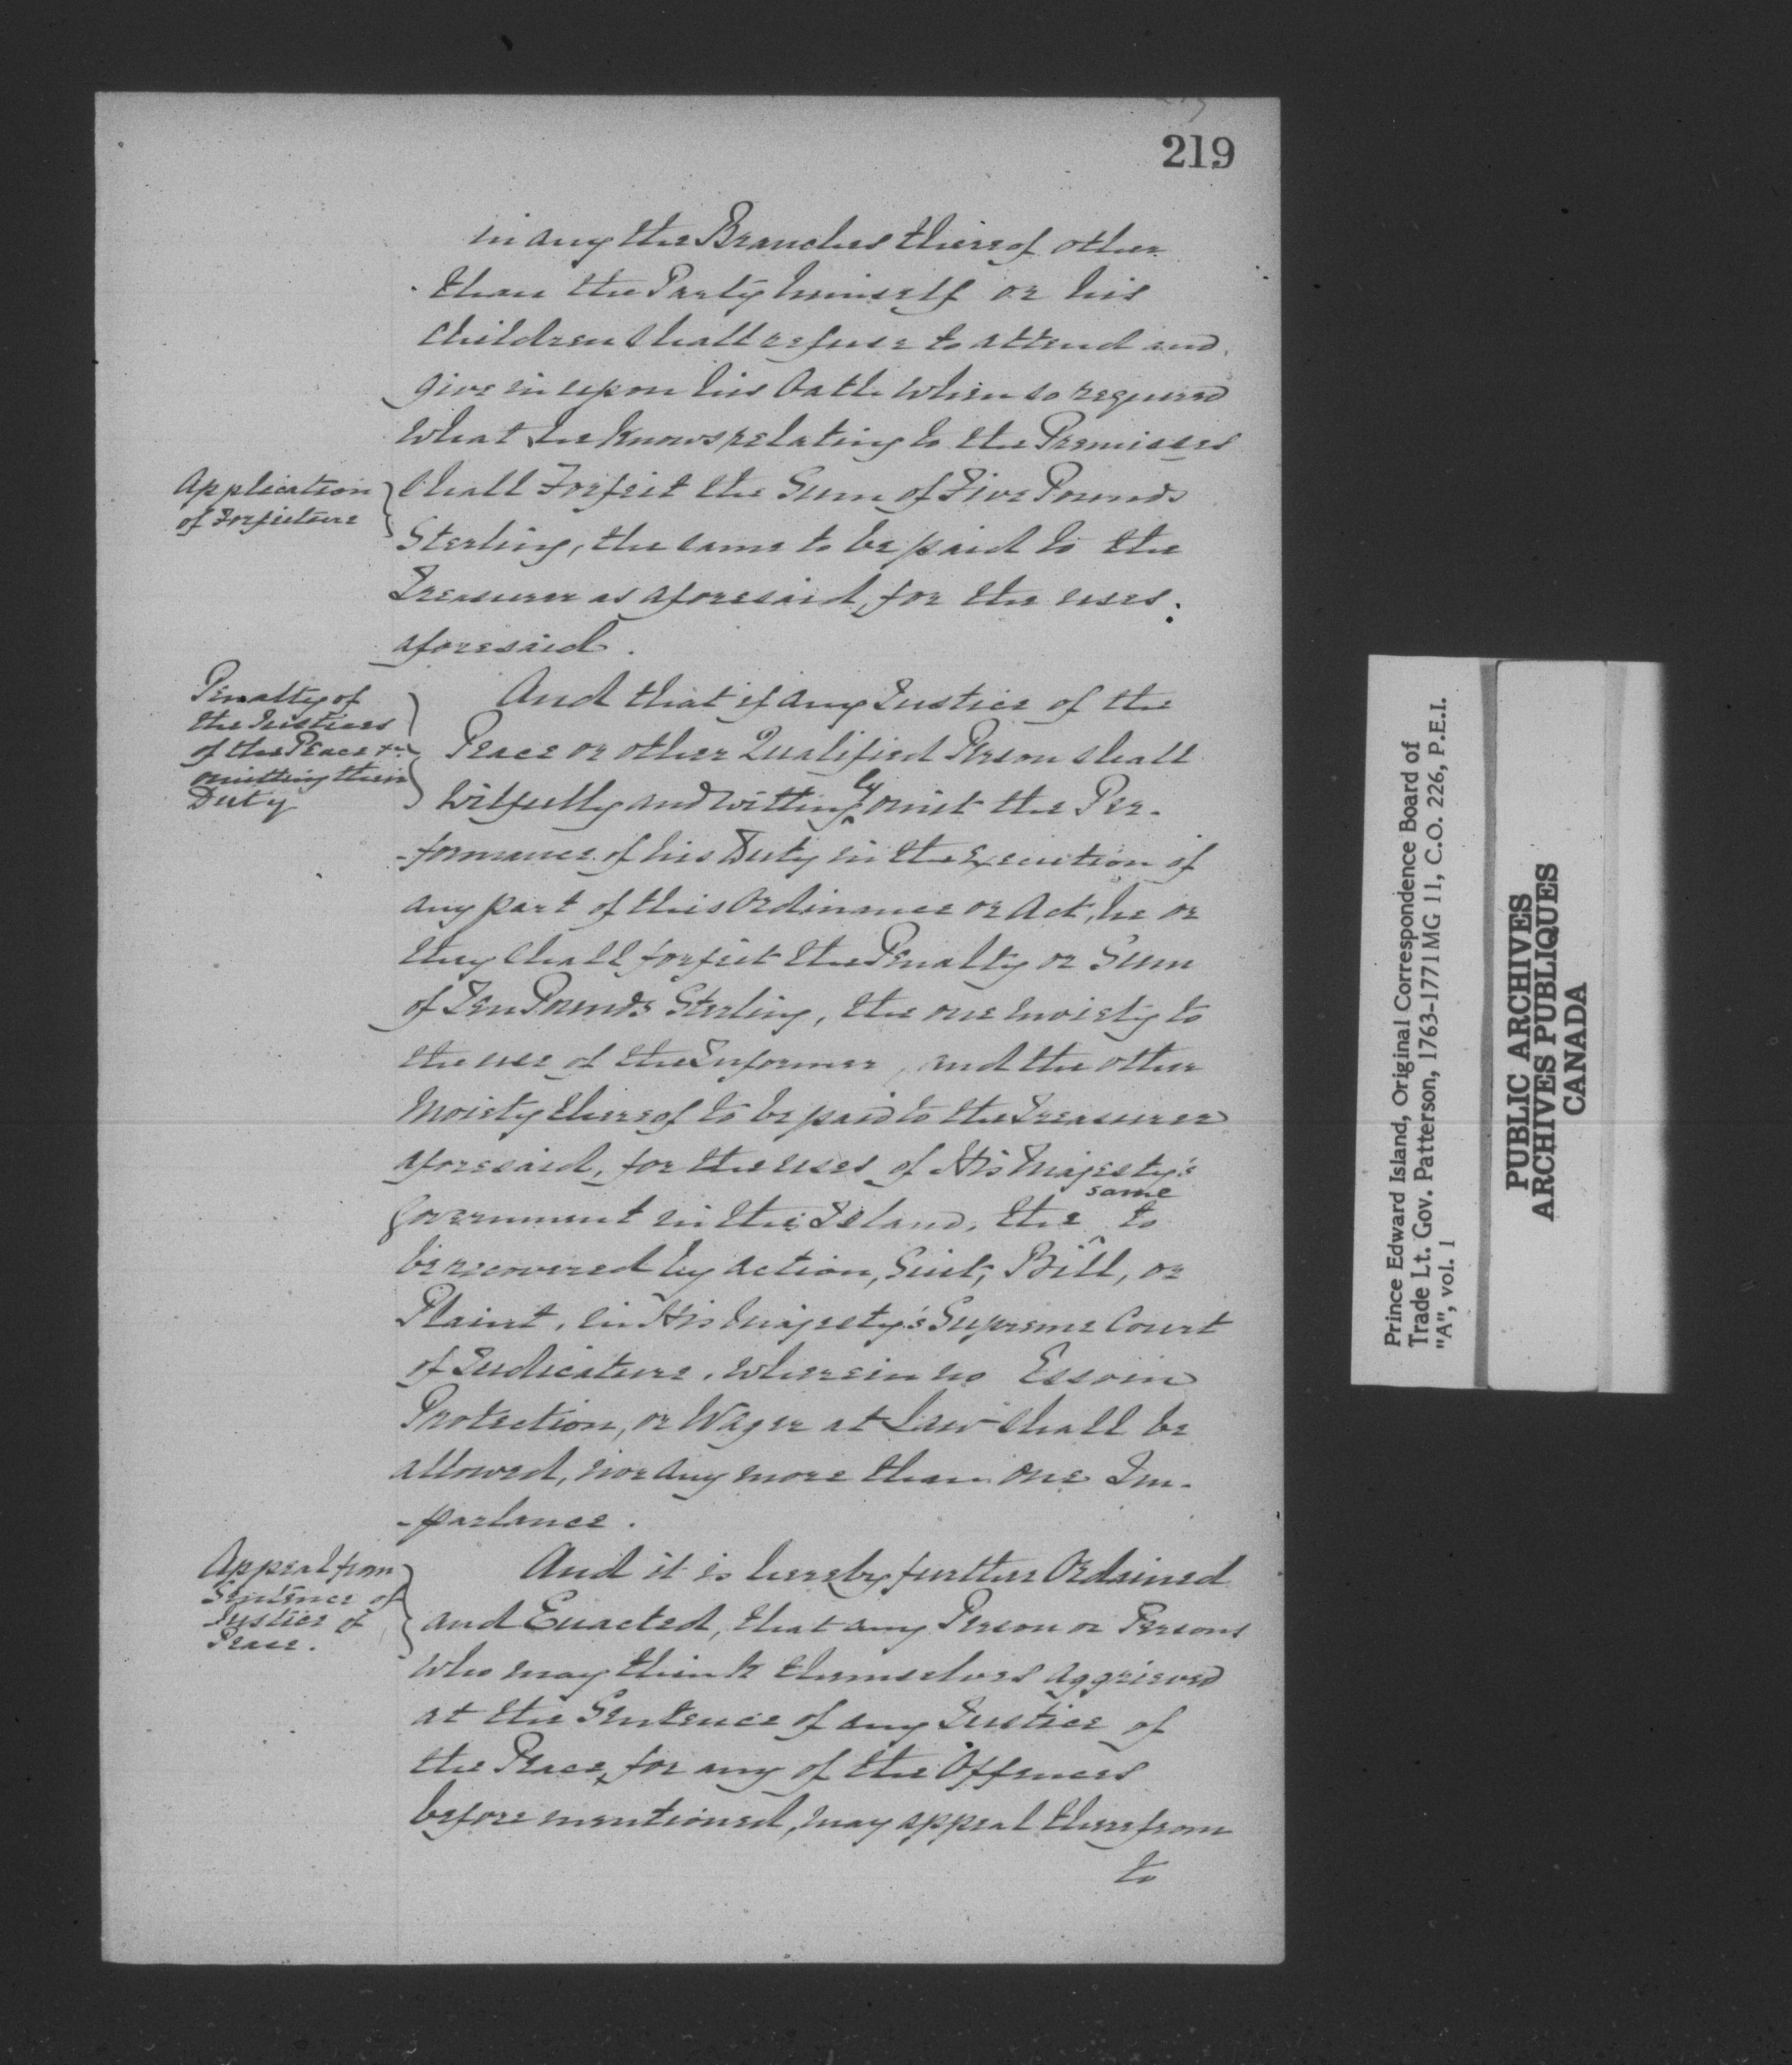 219
in any the Branches thereof other
than the Party himself or his
Children shall refuse to attend and
give in upon his Oath when so required
what he knows relating to the Premisses
Application
of Forfeiture
shall Forfeit the Sum of Five Pounds
Sterling, the same to be paid to the
Treasurer as aforesaid, for the uses
aforesaid.
Penalty of
the Justices
of the Peace &c
omitting their
Duty
And that if any Justice of the
Peace or other Qualified Person shall
wilfully and wittingly omit the Per-
-formance of his Duty in the Execution of
any part of this Ordinance or Act, he or
they shall forfeit the Penalty or Sum
of Ten Pounds Sterling, the one moiety to
the use of the Informer, and the other
Moiety thereof to be paid to the Treasurer
aforesaid, for the uses of His Majesty's
Government in this Island, the same to
be recovered by Action, Suit, Bill, or
Plaint, in His Majesty's Supreme Court
of Judicature, wherein no Essoin
Protection, or Wager at Law shall be
allowed, nor any more than one Im-
-parlance.
Appeal from
Sentence of
Justice of
Peace.
And it is hereby further Ordained
and Enacted, that any Person or Persons
who may think themselves aggrieved
at the Sentence of any Justice of
the Peace, for any of the Offences
before mentioned, may appeal therefrom
to
Prince Edward Island, Original Correspondence Board of
Trade Lt. Gov. Patterson, 1763-1771 MG 11, C.O. 226, P.E.I.
"A", vol. 1
PUBLIC ARCHIVES
ARCHIVES PUBLIQUES
CANADA